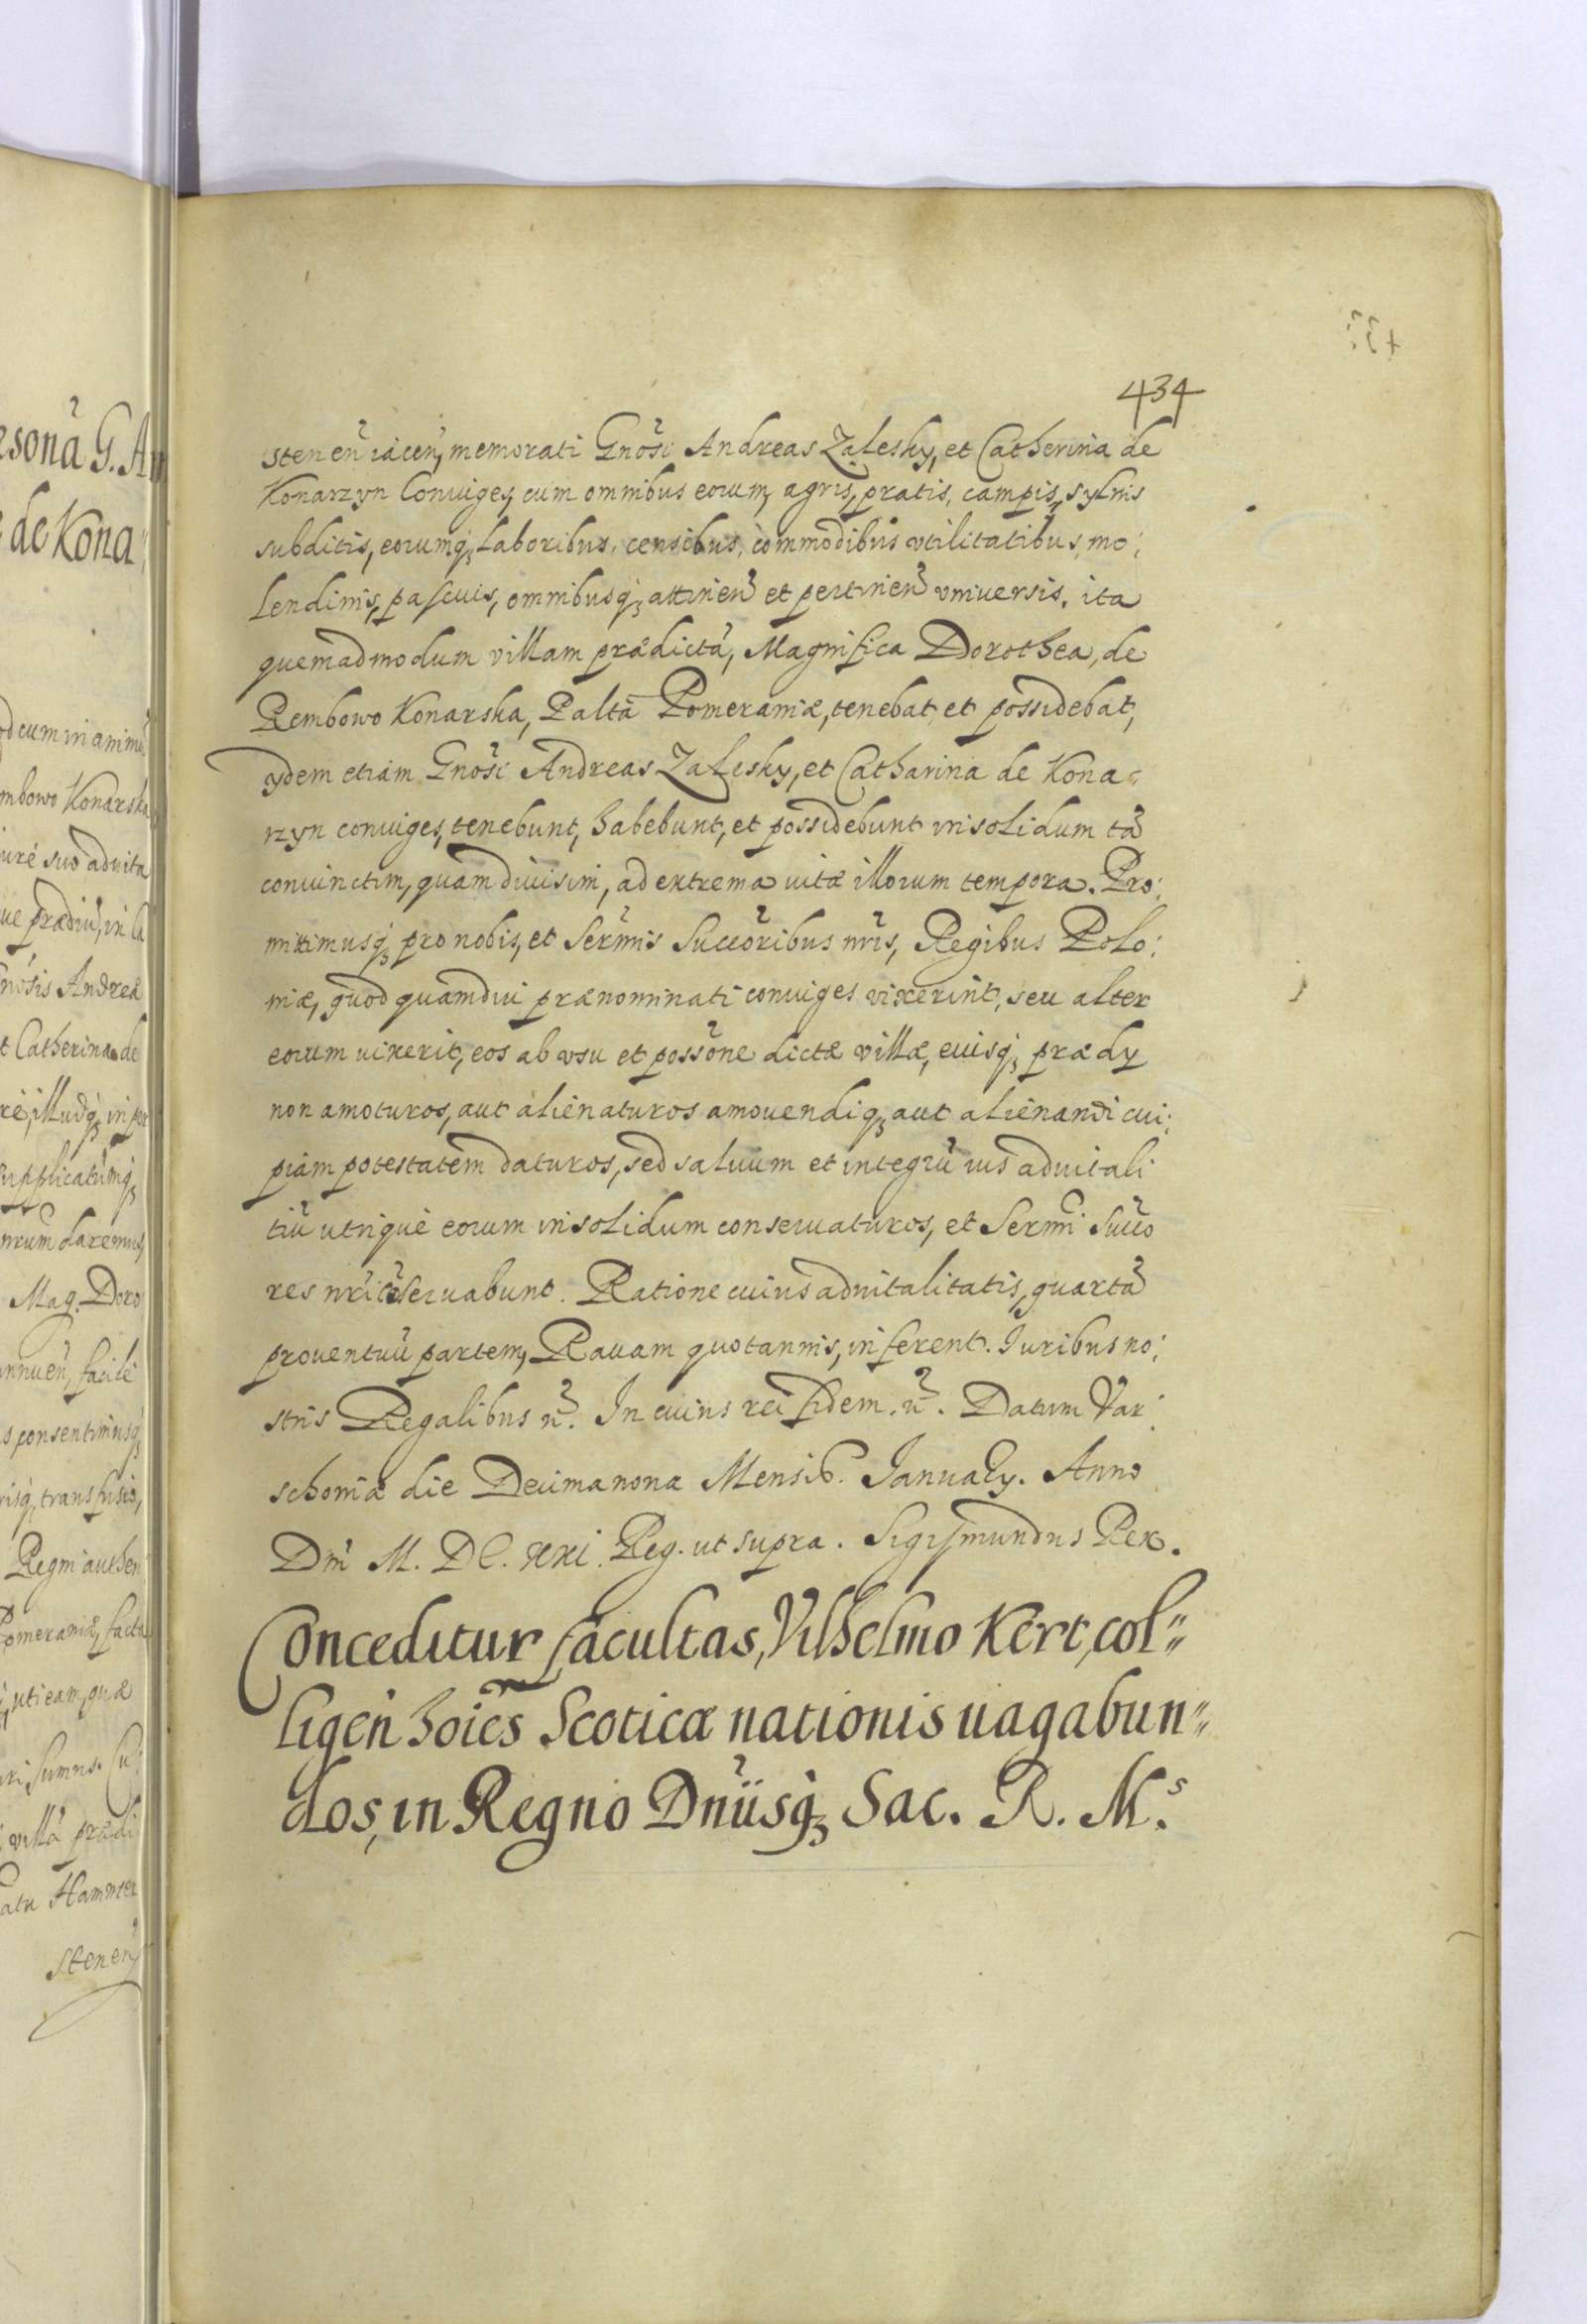 434
stenen̄ iacen̄, memorati Gnōsi Andreas Zalesky, et Catherina de
Konarzyn Coniuges, cum omnibus eorum, agris, pratis, campis, syluis
subditis, eorumq₃ laboribus, censibus, commodibus vtilitatibus, mo:
lendinis, pascuis, omnibusq₃ attinen̄ et pertinen̄ vniuersis. ita
quemadmodum villam prædictā, Magnifica Dorothea, de
Rembowo Konarska, Paltā Pomeraniæ, tenebat et possidebat,
ydem etiam Gnōsi Andreas Zalesky, et Catharina de Kona=
rzyn coniuges, tenebunt, habebunt, et possidebunt in solidum tā
coniunctim, quam diuisim, ad extrema uitæ illorum tempora. Pro:
mittimusq₃ pro nobis, et Serm̄is Succōribus nr̄is, Regibus Polo:
niæ, quod quamdiu prænominati coniuges vixerint, seu alter
eorum uixerit, eos ab vsu et possōne dictæ villæ, euisq₃ prædy
non amoturos, aut alienaturos amouendiq₃ aut alienandi cui:
piam potestatem daturos, sed saluum et integrū ius aduitali
tiū utrique eorum in solidum conseruaturos, et Serm̄i Succo
res nr̄i cōseruabunt. Ratione cuius aduitalitatis, quartā
prouentuū partem, Rauam quotannis, inferent. Iuribus no:
stris Regalibus n̄. In cuius rei fidem. n̄. Datum Var:
schoniæ die Decimanona Mensis. January. Anno
Dni M. DC. XXI. Reg. ut supra. Sigismundus Rex.
Conceditur facultas, Vilhelmo Kert, col=
ligen̄ hoīes Scoticæ nationis uagabun=
dos, in Regno Dn̄iisq₃ Sac. R. M.s